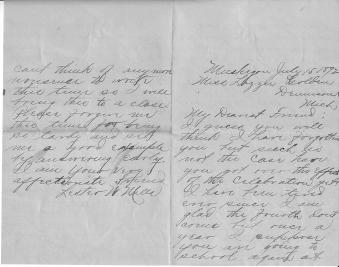 cant think of any more
nonsense to write
this time so I will
bring this to a close
Please forgive me
this time for being
so tardy and set
me a good example
by answering early.
I am Your Very
affectionate friend
Muskegon July 15 1892
Miss Lizzie
Mich
My Dearest Friend:
I guess you will
think I have forgotten
you but such is
not the case have
you got over the effects
of the Celebration yet
I have been tired
ever since I am
glad the Fourth dont
come but once a
year I suppose
you are going to
school again at